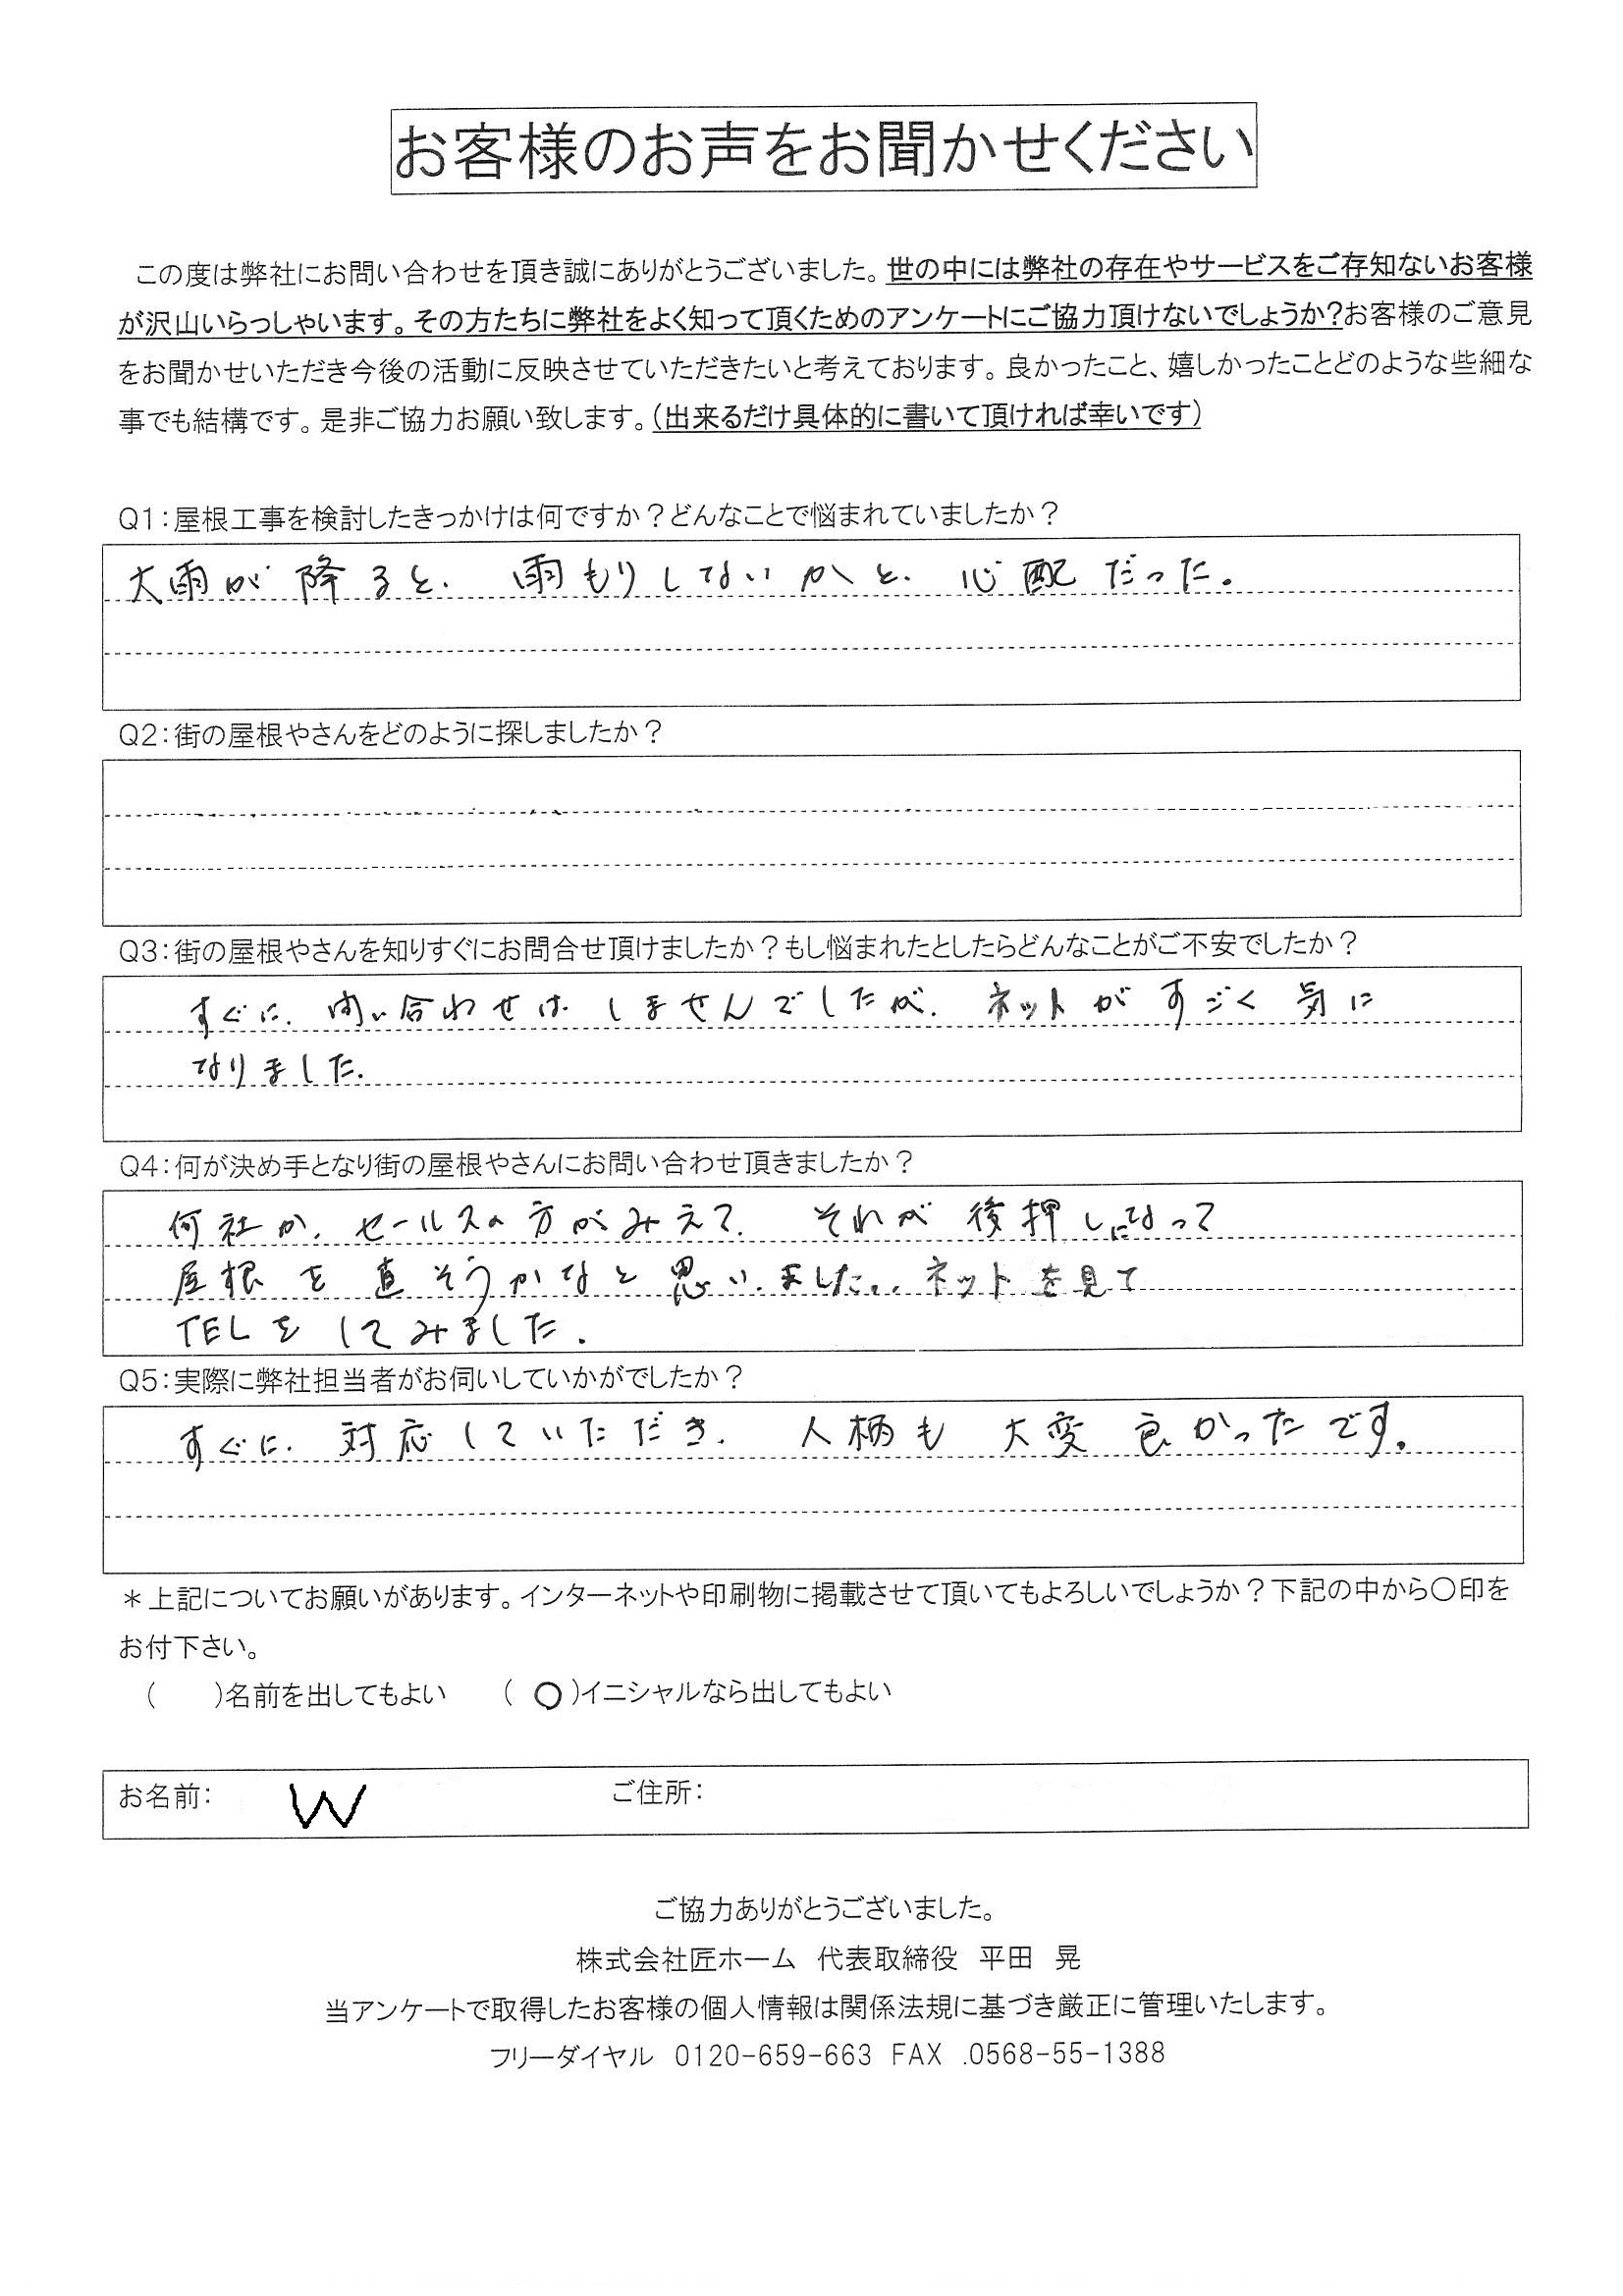 お客様のお声をお聞かせください
この度は弊社にお問い合わせを頂き誠にありがとうございました。世の中には弊社の存在やサービスをご存知ないお客様
が沢山いらっしゃいます。その方たちに弊社をよく知って頂くためのアンケートにご協力頂けないでしょうか?お客様のご意見
をお聞かせいただき今後の活動に反映させていただきたいと考えております。良かったこと、嬉しかったことどのような些細な
事でも結構です。是非ご協力お願い致します。(出来るだけ具体的に書いて頂ければ幸いです)
Q1:屋根工事を検討したきっかけは何ですか?どんなことで悩まれていましたか?
大雨が降ると、雨もりしないかと、心配だった。
Q2:街の屋根やさんをどのように探しましたか?
Q3:街の屋根やさんを知りすぐにお問合せ頂けましたか?もし悩まれたとしたらどんなことがご不安でしたか?
すぐに、問い合わせは しませんでしたが、ネットが すごく 気に
なりました。
Q4:何が決め手となり街の屋根やさんにお問い合わせ頂きましたか?
何社か、セールスの方がみえて、それが後押しになって
屋根を直そうかなと思いました。ネットを見て
TELをしてみました。
Q5:実際に弊社担当者がお伺いしていかがでしたか?
すぐに、対応していただき、人柄も 大変 良かったです。
*上記についてお願いがあります。インターネットや印刷物に掲載させて頂いてもよろしいでしょうか?下記の中から〇印を
お付下さい。
( )名前を出してもよい (〇)イニシャルなら出してもよい
お名前: W ご住所:
ご協力ありがとうございました。
株式会社匠ホーム 代表取締役 平田 晃
当アンケートで取得したお客様の個人情報は関係法規に基づき厳正に管理いたします。
フリーダイヤル 0120-659-663 FAX .0568-55-1388